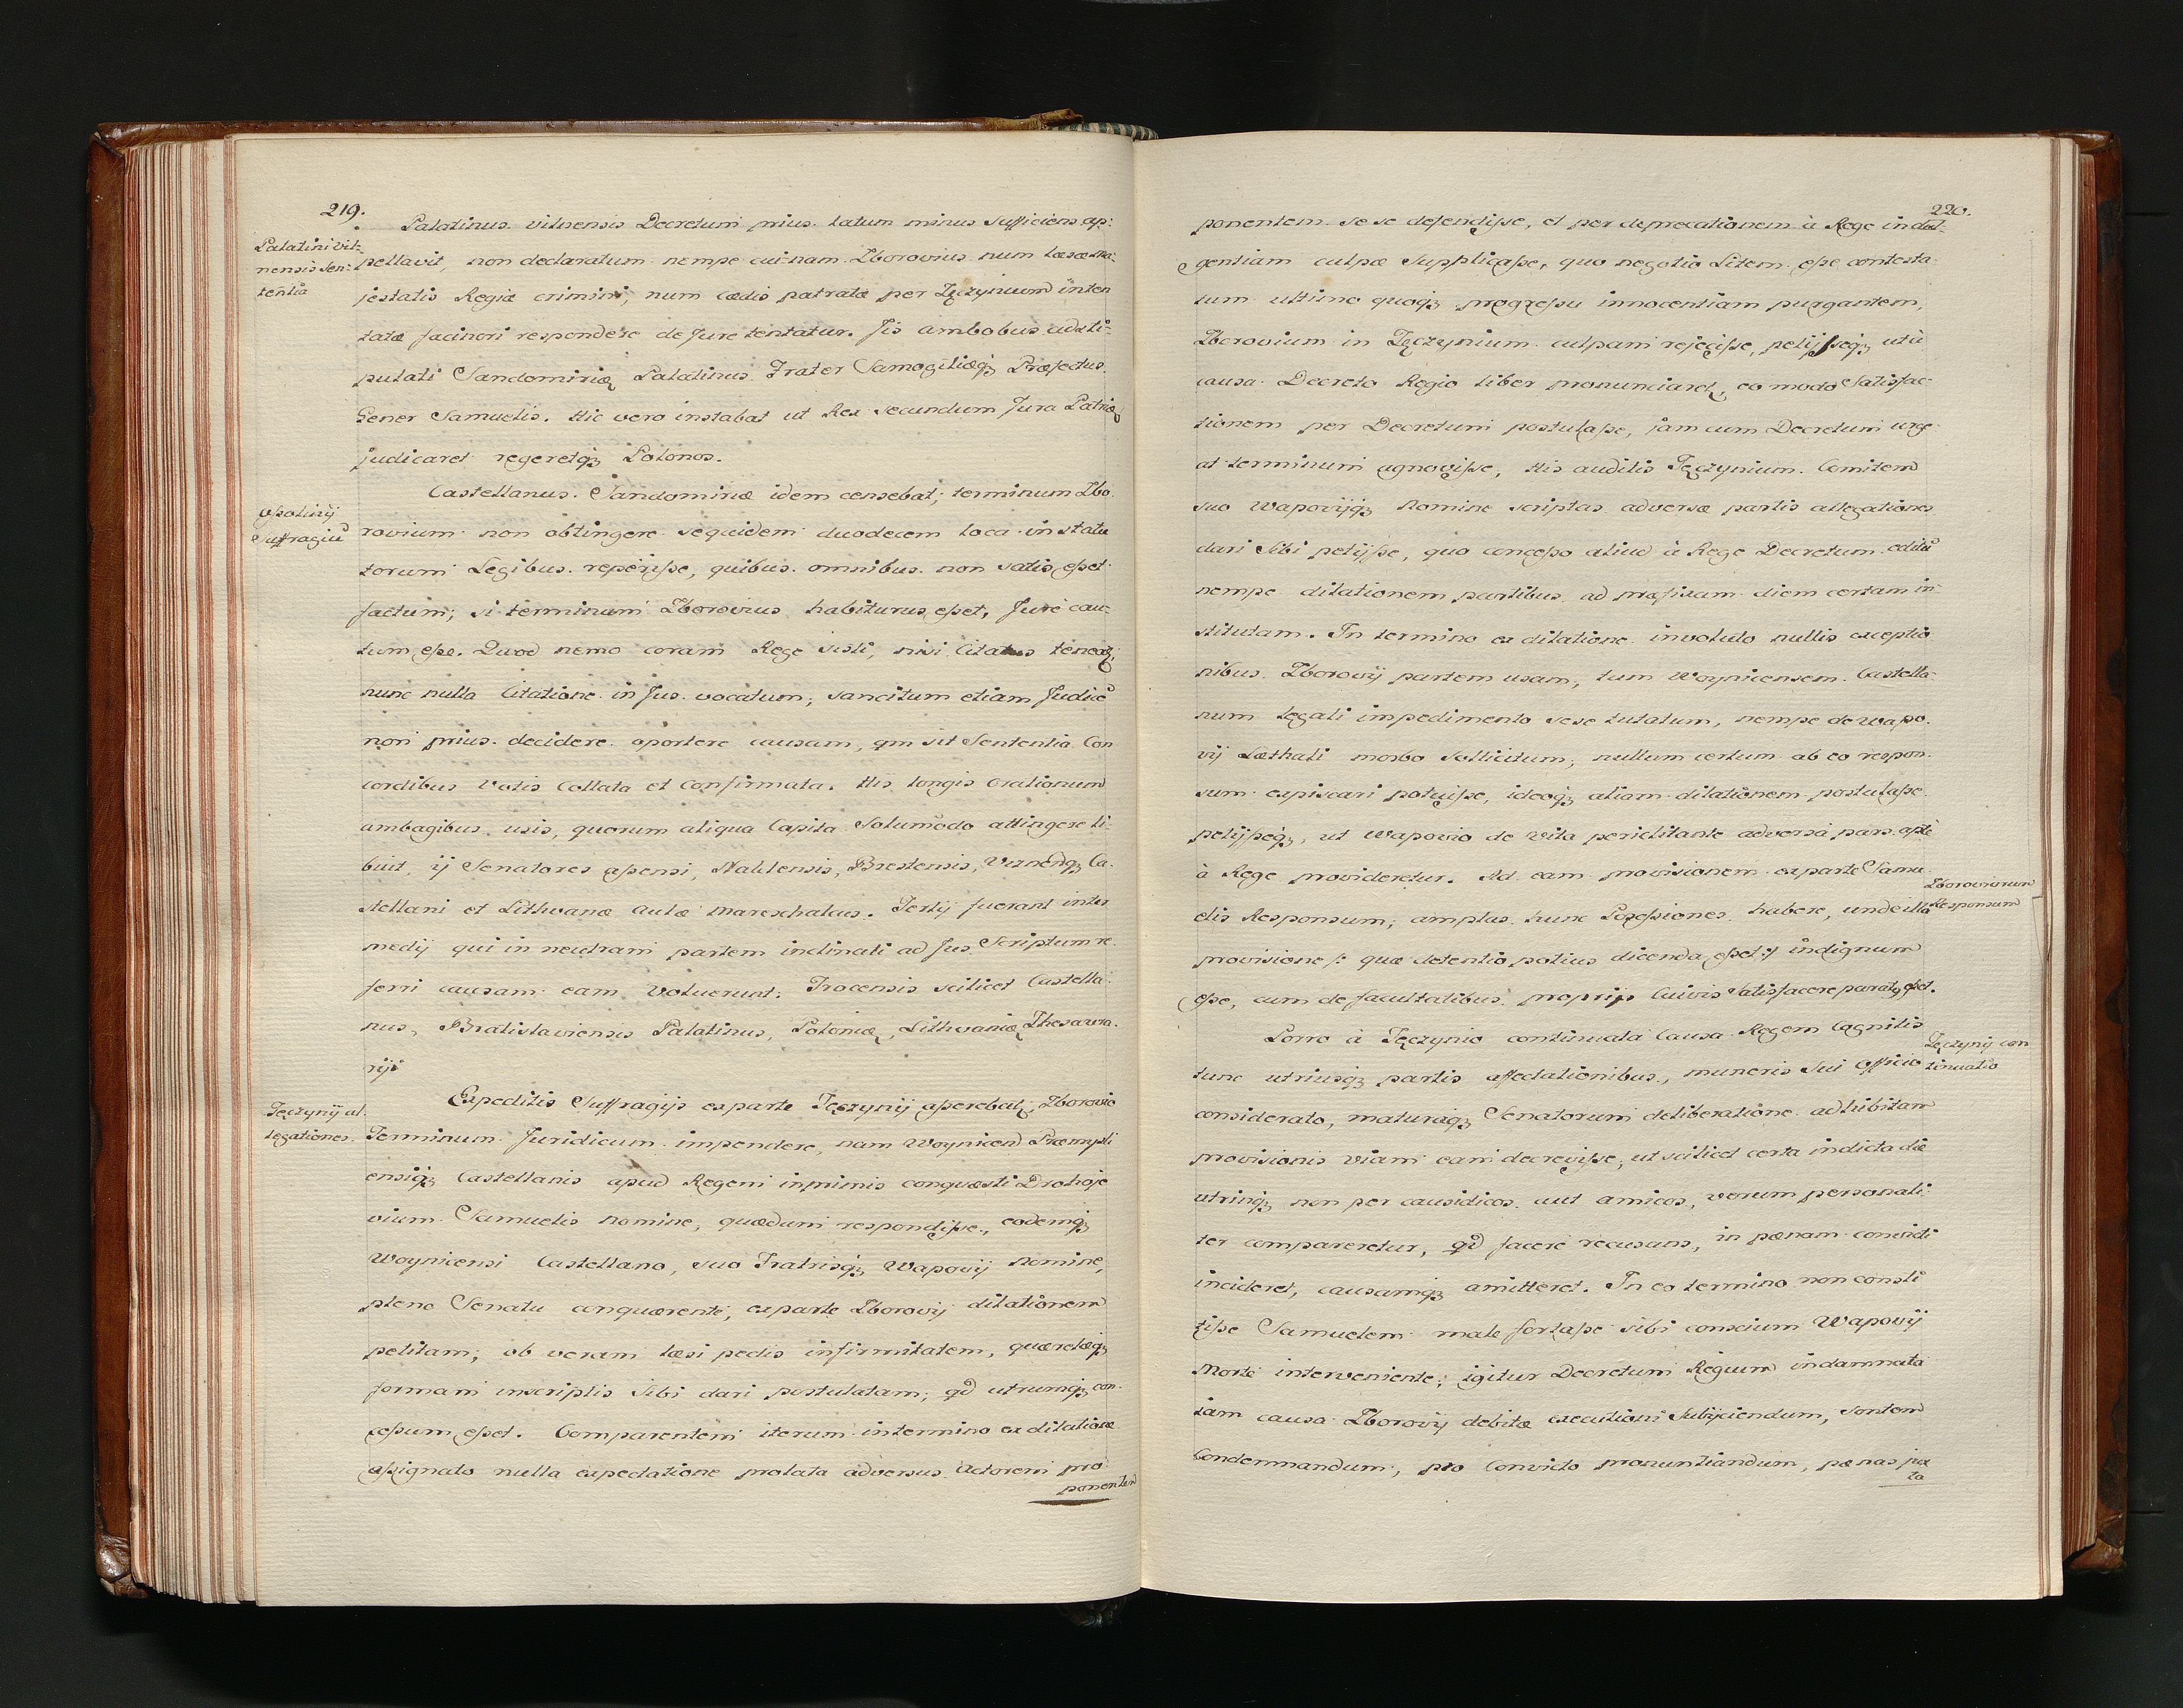 219.
Palatinus vilnensis Decretum prius latum minus sufficiens ap:
Palatini vil-
nensis Sen:
tentia
pellavit, non declaratum nempe cui nam Zborovius num læsæ Ma:
jestatis Regiæ crimini, num cædis patratæ per Tęczynium inten
tatæ facinori respondere de Jure tentatur. Jis ambobus adsti-
pulati Sandomiriæ Palatinus Frater Samogitiæq3 Præfectus
Gener Samuelis. Hic vero instabat ut Rex secundum Jura Patriæ
judicaret regeretq3 Polonos.
Castellanus Sandomiriæ idem censebat; terminum Zbo
Suffragiū
rovium non obtingere sequidem duodecem loca in statu
torum Legibus reperisse, quibus omnibus non satis esset
factum; si terminum Zborovius habiturus esset, Jure cau
tum esse. Quod nemo coram Rege sisti, nisi Citatus teneat;
hunc nulla Citatione in Jus vocatum, sancitum etiam Judicē
non prius decidere oportere causam, qm sit Sententia Con
cordibus Votis Collata et Confirmata. His longis Orationum
ambagibus usis, quorum aliqua Capita Solumodo attingere li-
buit, ij Senatores assensi, Naklensis, Brestensis, Ca-
stellani et Lithvanæ Aulæ Mareschalcus. Tertij fuerant inter
medij qui in neutram partem inclinati ad Jus Scriptum re
ferri causam eam Voluerunt: Trocensis scilicet Castella
nus, Bratislaviensis Palatinus, Poloniæ, Lithvaniæ Thesaura-
rij
Expeditis Suffragijs exparte Tęczynij asserebat; Zborovio
Tęczynij al-
legationes.
Terminum Juridicum impendere, nam Woynicens Præmysli
ensiq3 Castellanis apud Regem inprimis conquæsti Drohojo
vium Samuelis nomine, quædum respondisse, eodemq3
Woynicensi Castellano, suo Fratrisq3 Wapovij nomine,
pleno Senatu conquærente, exparte Zborovij dilationem
petitam; ob veram læsi pedis infirmitatem, quærelæq3
formam inscriptis Sibi dari postulatam; qd utrumq3 con-
cessum esset. Comparentem iterum in termino ex dilatione
assignato nulla expectatione prolata adversus Actorem pro
ponentem
220.
ponentem sese defendisse, et per deprecationem à Rege indul-
gentiam culpæ Supplicasse, quo negotio Litem esse contesta
tum ultimo quoq3 progressu innocentiam purgantem,
Zborovium in Tęczynium culpam rejecisse, petijsseq3 ut à
causa Decreto Regio liber pronunciaret, eo modo Satisfac-
tionem per Decretum postulasse, jam cum Decretum urge
at terminum agnovisse, His auditis Tęczynium Comitem
suo Wapovijq3 Nomine scriptas adversæ partis allegationes
dari Sibi petijsse, quo concesso aliud à Rege Decretum editū
nempe dilationem partibus ad præfixam diem certam in-
stitutam. In termino ex dilatione involuto nullis exceptio
nibus Zborovij partem usam, tum Woynicensem Castella-
num legali impedimento sese tutatum, nempe de Wapo-
vij Læthali morbo Sollicitum, nullum certum ab eo respon-
sum expiscari potuisse, ideoq3 aliam dilationem postulasse
petijsseq3, ut Wapovio de Vita periclitante adversa pars aptè
à Rege provideretur. Ad eam provisionem exparte Samu
Zboroviorum
Responsum
elis Responsum, amplas hunc Possessiones habere, unde illa
provisione /: quæ detentio potius dicenda esset :/ indignum
esse, cum de facultatibus proprijs Cuivis Satisfacere paratus esset.
Porro à Tęczynio continuata Causa Regem Cognitis
Tęczynij con
tinuatio
tunc utriusq3 partis affectationibus, muneris Sui Officio
considerato, maturaq3 Senatorum deliberatione adhibitam
provisionis viam eam decrevisse, ut scilicet certa indicta die
utrinq3 non per causidicos aut amicos, verum personali
ter compareretur, qd facere recusans, in pœnam convicti
incideret, causamq3 amitteret. In eo termino non consti
tisse Samuelem male fortasse sibi conscium Wapovij
Morte interveniente; igitur Decretum Regium indamnata
iam causa Zborovij debitæ executioni Subijciendum, sontem
Condemnandum, pro Convicto pronuntiandum, pœnas jux
ta